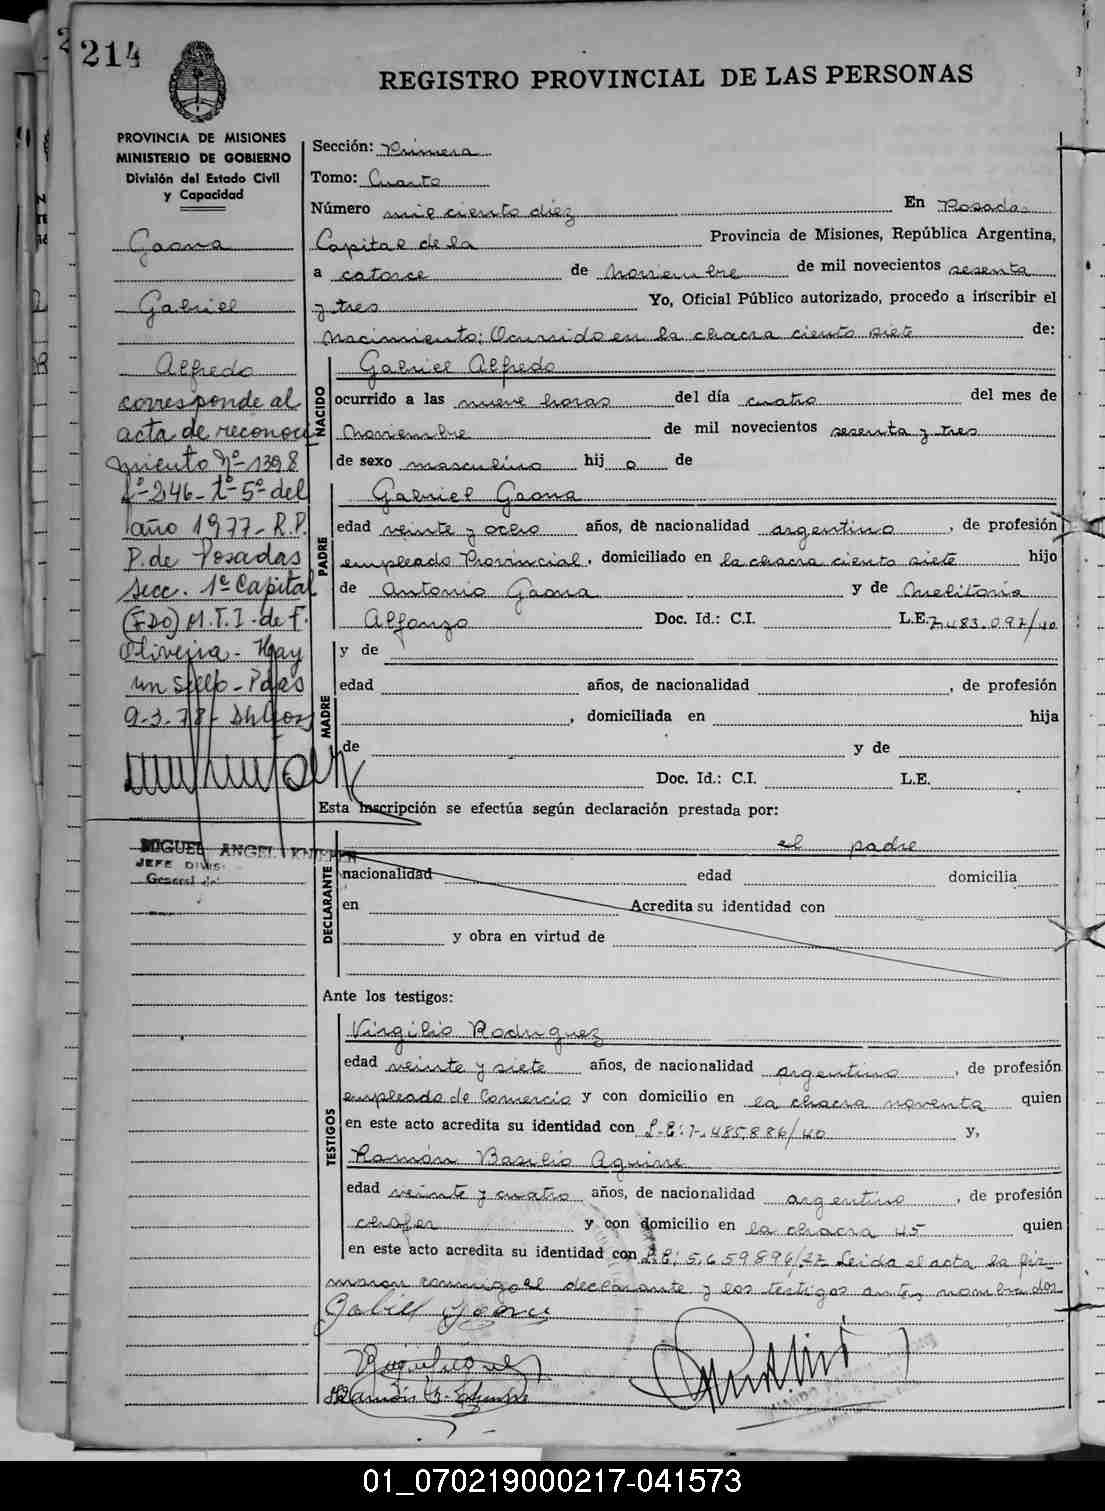 214
REGISTRO PROVINCIAL DE LAS PERSONAS
PROVINCIA DE MISIONES
MINISTERIO DE GOBIERNO
División del Estado Civil
y Capacidad
Gaona
Gabriel
Alfredo
corresponde al
acta de reconoci
miento Nº 1398
Fº 246 - tº 5º del
año 1977 - R.P.
P. de Posadas
Secc. 1º Capital
(FDO) M.T.I. de F.
Oliveira - Hay
un sello - Pdas
9-3-78 -
MIGUEL ANGEL
JEFE DIVIS
General
Sección: Primera
Tomo: Cuarto
Número mil ciento diez En Posadas
Capital de la Provincia de Misiones, República Argentina,
a catorce de Noviembre de mil novecientos sesenta
y tres Yo, Oficial Público autorizado, procedo a inscribir el
Nacimiento: Ocurrido en la chacra ciento siete de:
NACIDO
Gabriel Alfredo
ocurrido a las nueve horas del día cuatro del mes de
Noviembre de mil novecientos sesenta y tres
de sexo masculino hij o de
PADRE
Gabriel Gaona
edad veinte y ocho años, de nacionalidad argentino, de profesión
empleado Provincial, domiciliado en la chacra ciento siete hijo
de Antonio Gaona y de Melitona
Alfonzo Doc. Id.: C.I. L.E. 7.483.097/40
MADRE
y de
edad años, de nacionalidad , de profesión
, domiciliada en hija
de y de
Doc. Id.: C.I. L.E.
Esta inscripción se efectúa según declaración prestada por:
el padre
DECLARANTE
nacionalidad edad domicilia
en Acredita su identidad con
y obra en virtud de
Ante los testigos:
TESTIGOS
Virgilio Rodriguez
edad veinte y siete años, de nacionalidad argentino, de profesión
empleado de Comercio y con domicilio en la chacra noventa quien
en este acto acredita su identidad con L.E: 7.485.886/40 y,
Ramón Basilio Aguirre
edad veinte y cuatro años, de nacionalidad argentino, de profesión
chofer y con domicilio en la chacra 45 quien
en este acto acredita su identidad con L.E: 5.659.896/ Leida el acta la fir
maron conmigo el declarante y los testigos antes nombrados
01_070219000217-041573